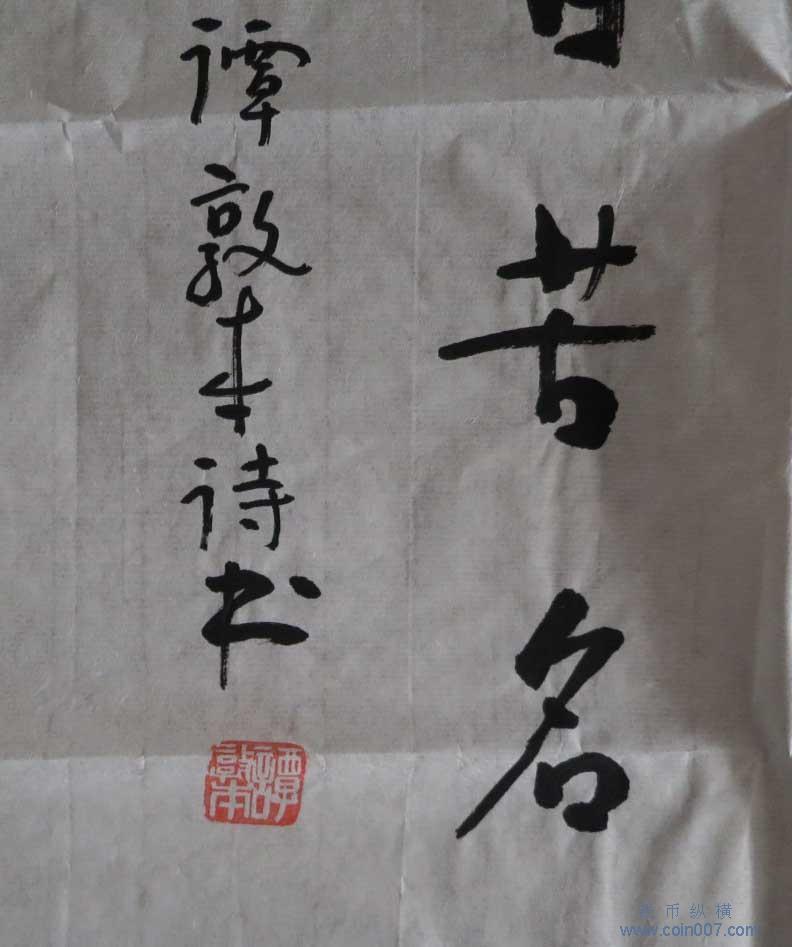 苦名
谭敦本诗书
譚敦本
钱币纵横
www.coin007.com